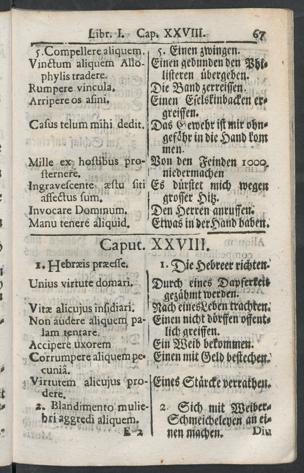 Libr. I. Cap. XXVIII. 67
5. Compellere aliquem. 5. Einen zwingen.
Vinctum aliquem Allo- Einen gebunden den Phi-
phylis tradere. listeren übergeben.
Rumpere vincula. Die Band zerreissen.
Arripere os asini. Einen Eselskinbacken er-
greiffen.
Casus telum mihi dedit. Das Gewehr ist mir ohn-
gefähr in die Hand kom
men.
Mille ex hostibus pro- Von den Feinden 1000.
sternere. niedermachen
Ingravescente æstu siti Es dürstet mich wegen
affectus sum. grosser Hitz.
Invocare Dominum. Den Herren anruffen.
Manu tenere aliquid. Etwas in der Hand haben.
Caput. XXVIII.
1. Hebræis præesse. 1. Die Hebreer richten.
Unius virtute domari. Durch eines Dapferkeit
gezähmt werden.
Vitæ alicujus insidiari. Nach eines Leben trachten.
Non audere aliquem pa- Einen nicht dörffen offent-
lam tentare. lich greiffen.
Accipere uxorem Ein Weib bekommen.
Corrumpere aliquem pe- Einen mit Geld bestechen.
cuniâ.
Virtutem alicujus pro- Eines Stärcke verrathen.
dere.
2. Blandimento mulie- 2. Sich mit Weiber-
bri aggredi aliquem. Schmeicheleyen an ei-
nen machen.
E 2 Diu